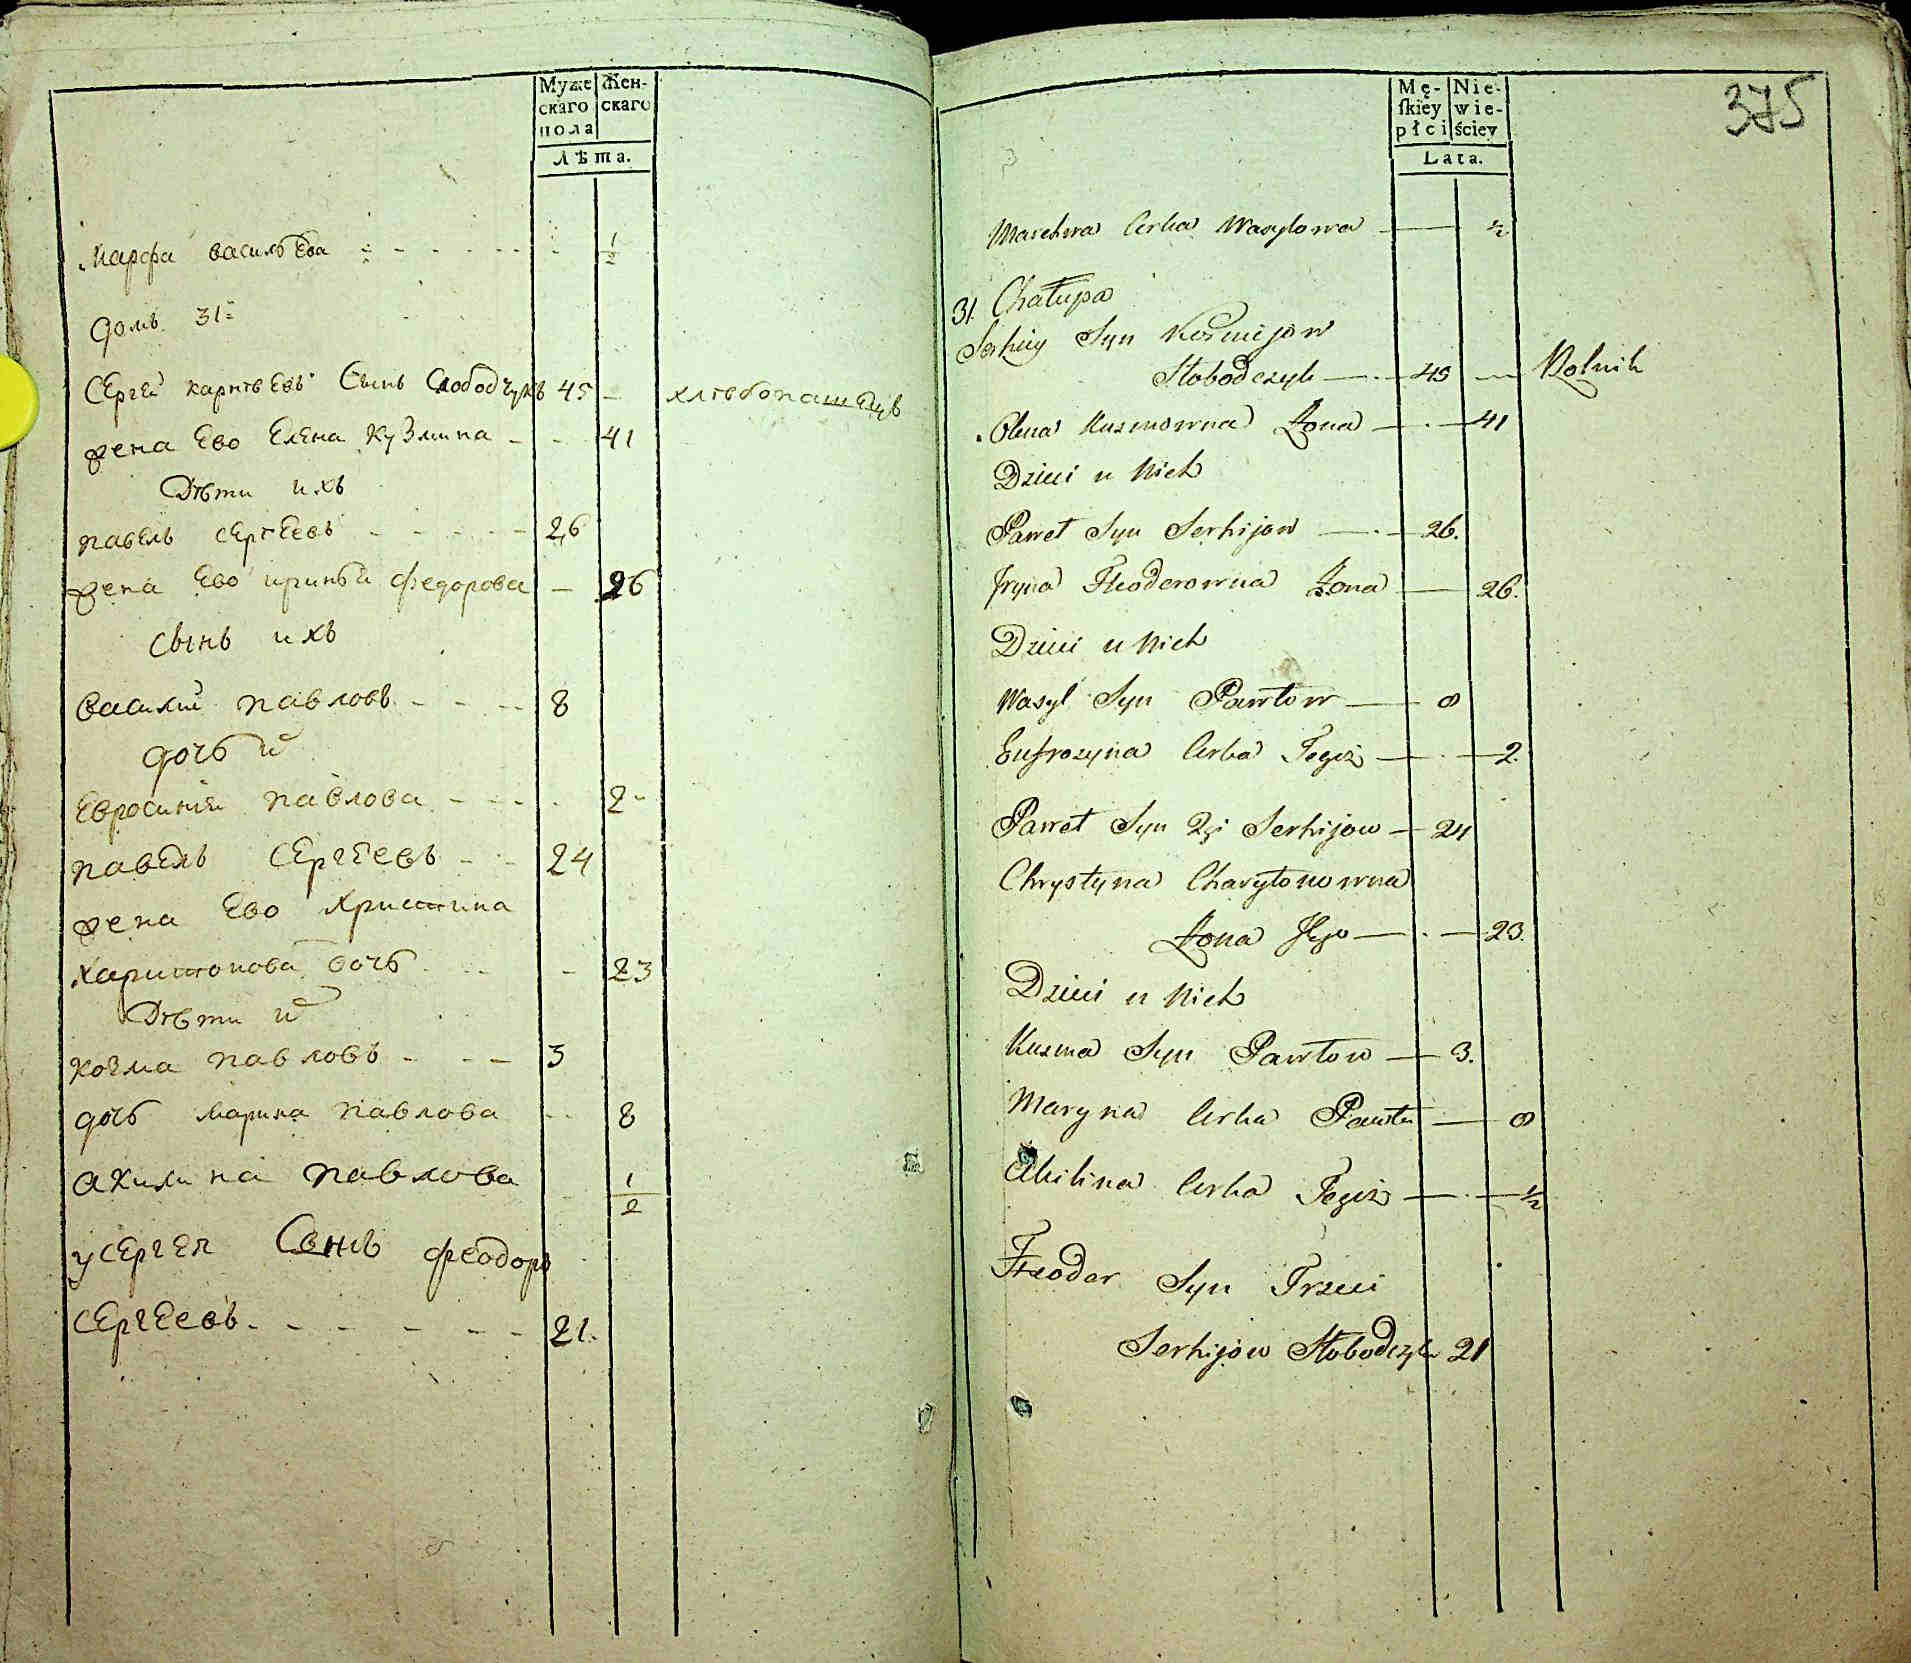 Муже
скаго
пола
Жен-
скаго
Лѣта.
Марфа васильева 1/2
домъ 31:
Сергей карпѣевъ Сынъ Слободчукъ 45 — хлѣбопашецъ
жена Ево Елена Кузмина - - 41
Дѣти ихъ
павелъ сергеевъ - - - - - 26
жена Ево ирина федорова — 26
сынъ ихъ
василий павловъ - - - 8
дочь и
Евросиния павлова - - - 2
павелъ Сергеевъ - - 24
жена Ево Христина
Харитонова дочь - 23
Дѣти и
козма павловъ - - - 3
дочь марина павлова - - 8
акилина павлова 1/2
у сергея Сынъ феодоръ
сергеевъ - - - - - - 21.
375
Mę-
ſkiey
płci
Nie-
wie-
ściey
Lata.
Marchwa Corka Wasylowa — ½
31. Chałupa
Serhiy Syn
Słobodczyk — 45 — Rolnik
Olena Kuzmowna Żona — 41
Dzieci u Nich
Paweł Syn Serhijow — 26.
Iryna Fheodorowna Żona — 26.
Dzieci u Nich
Wasyl Syn Pawłow — 8
Eufrozyna Corka Tegoż — 2.
Paweł Syn 2gi Serhijow — 24
Chrystyna Charytonowna
Żona Jego — 23.
Dzieci u Nich
Kuzma Syn Pawłow — 3.
Maryna Corka Pawła — 8
Akilina Corka Tegoż — ½
Fheodor Syn Trzeci
Serhijow Słobodczyk 21